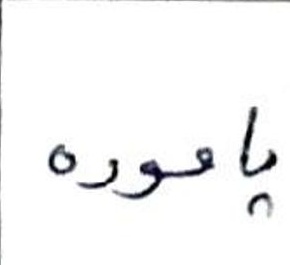 پاموره